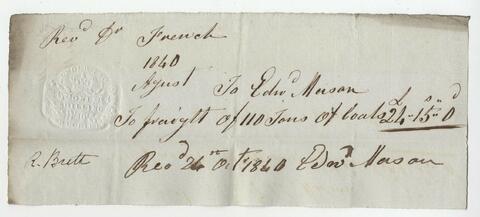 Revd Dr French
1840
Agust
To Edwd Mason
£ s d
To fraight of 110 Tons of Coals 24 - 15 " 0
R. Brett Recd 24th Octr 1840 Edwd Mason